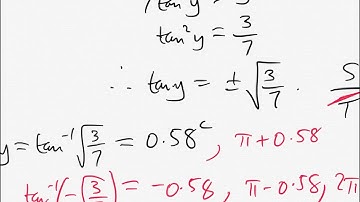 tan²y = 3/7
∴ tan y = ±√(3/7) . S/T
y = tan⁻¹√(3/7) = 0.58ᶜ, π+0.58
tan⁻¹(-√(3/7)) = -0.58, π-0.58, 2π